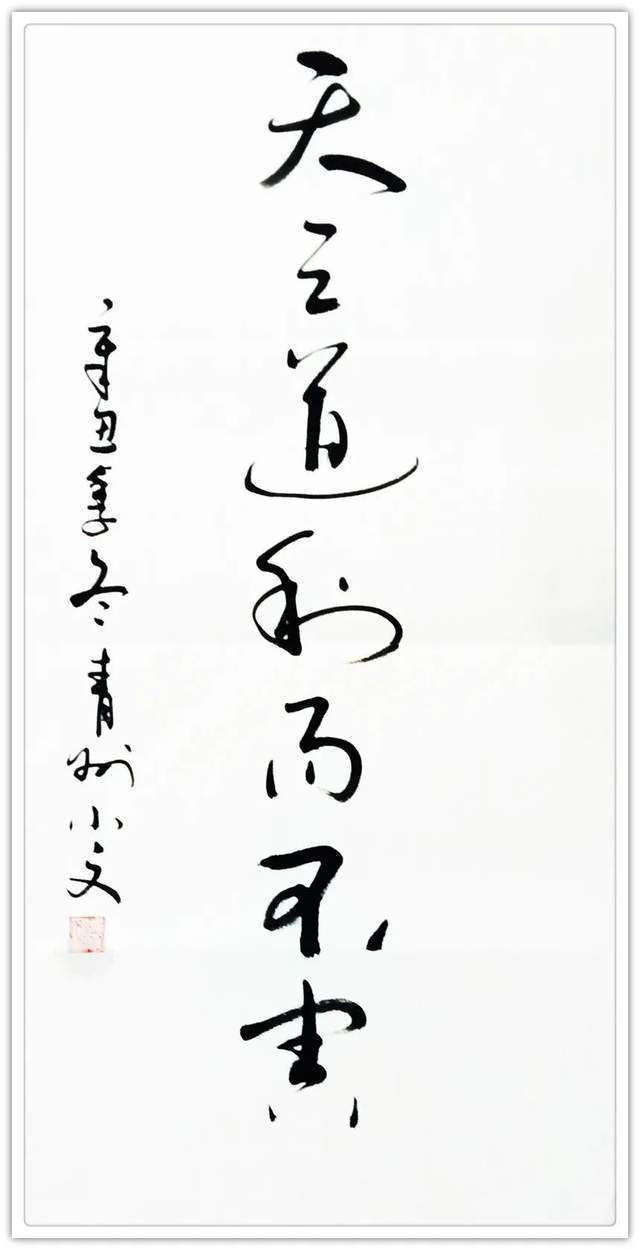 天之道利而不害
辛丑季冬青州小文